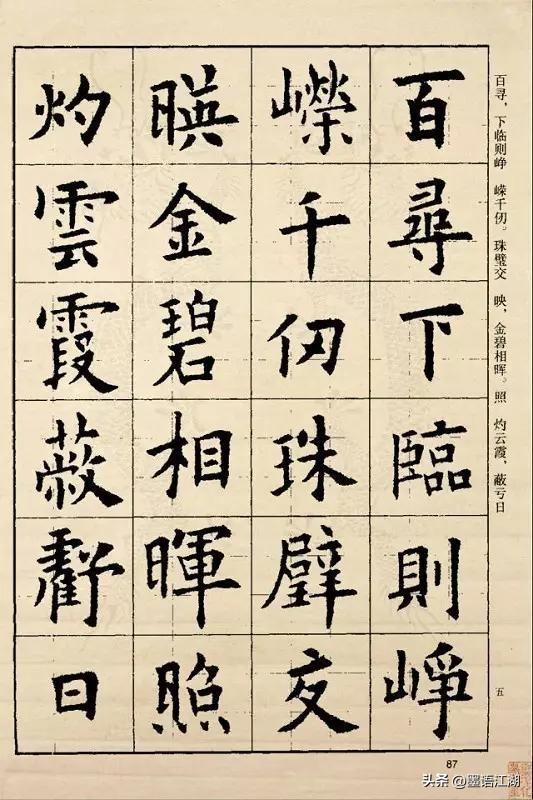 百尋下臨則崢
嶸千仞珠璧交
暎金碧相暉照
灼雲霞蔽虧日
百寻，下临则峥　嵘千仞。珠璧交　映，金碧相晖。照　灼云霞，蔽亏日
五
87
头条 @墨语江湖